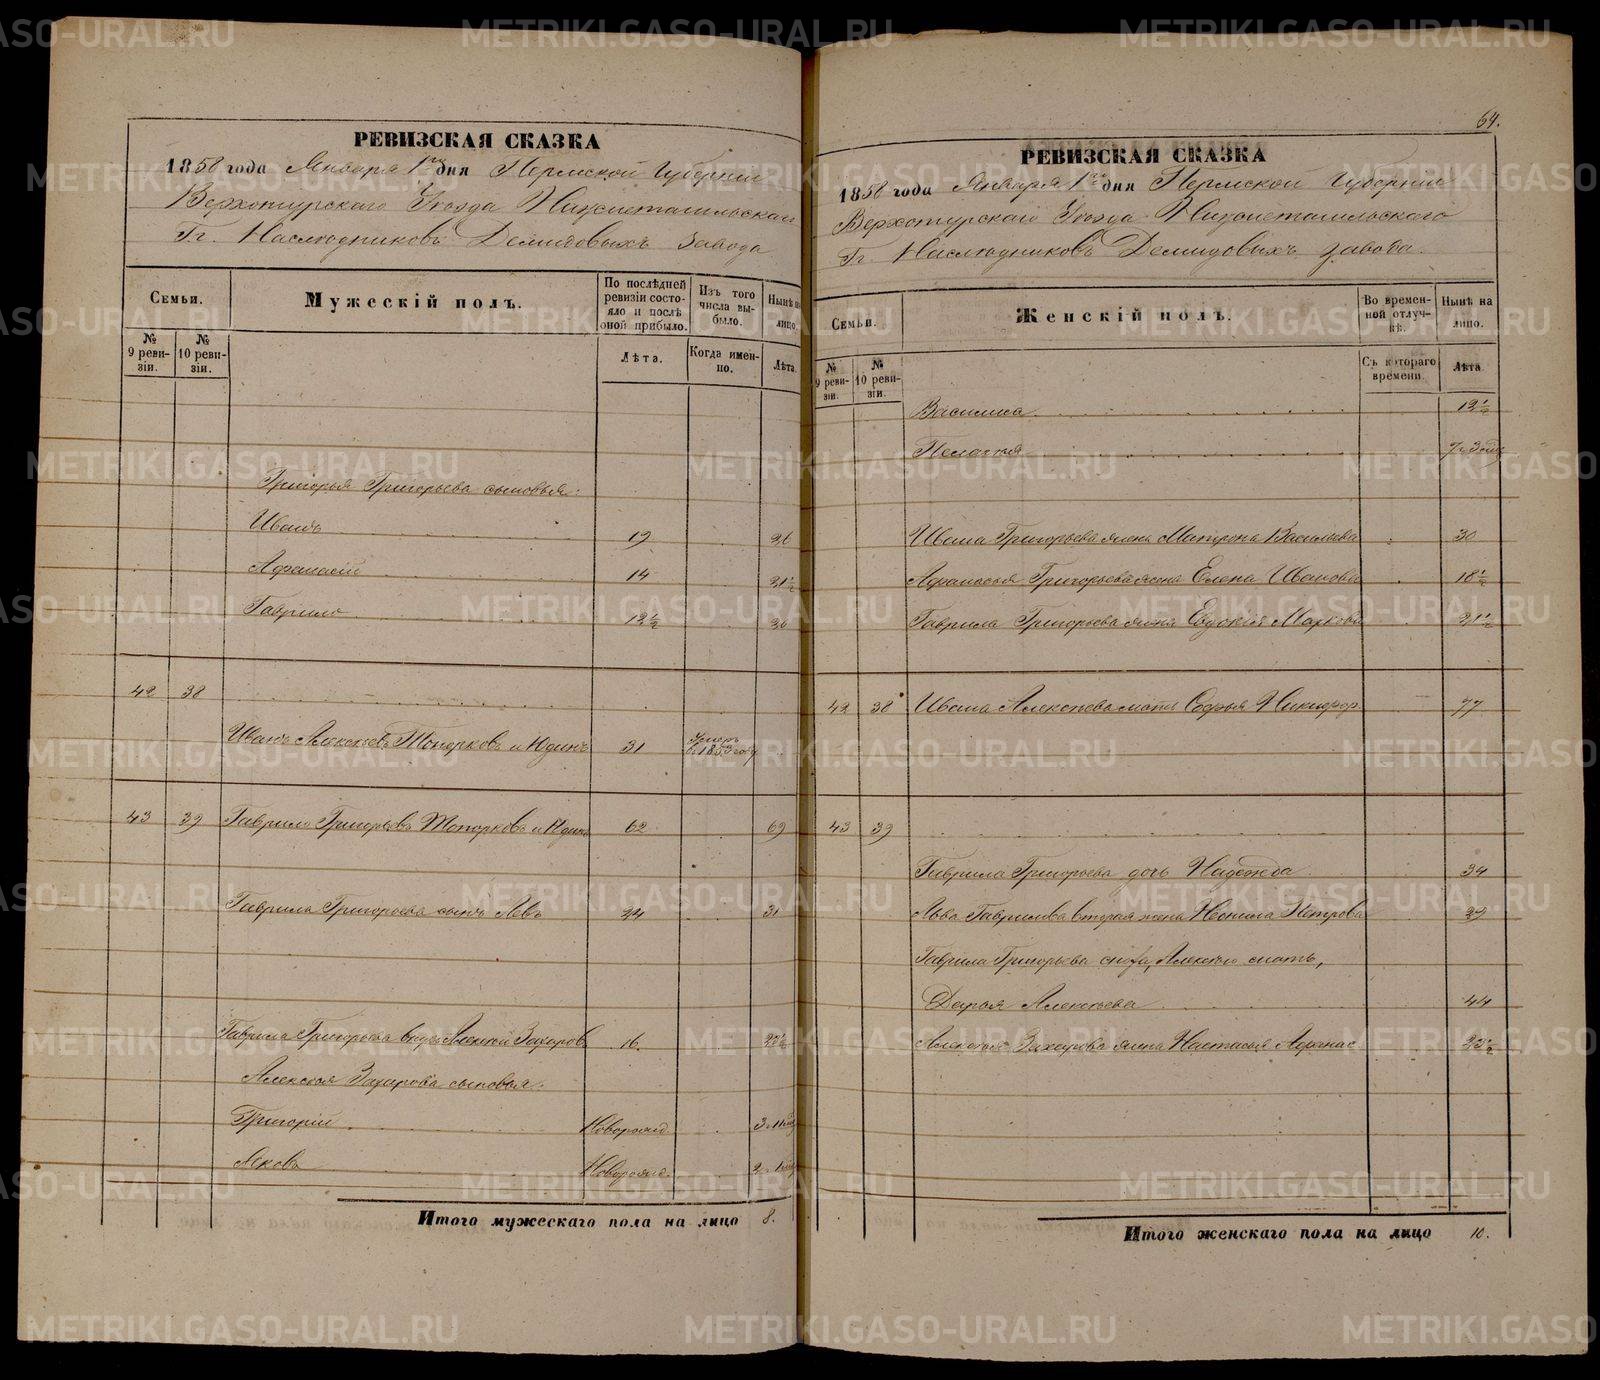 РЕВИЗСКАЯ СКАЗКА
1858 года Января 1го дня Пермской Губерніи
Верхотурскаго Уѣзда Нижнетагильскаго
Гг. Наслѣдниковъ Демидовыхъ завода
Семьи.
Мужескій полъ.
По послѣдней ревизіи состояло и послѣ оной прибыло.
Изъ того числа выбыло.
Нынѣ на лицо.
№ 9 ревизіи.
№ 10 ревизіи.
Лѣта.
Когда именно.
Лѣта.
Григорья Григорьева сыновья:
Иванъ 19 26
Афанасій 14 21½
Гаврило 13½ 20
42 38
Иванъ Алексѣевъ Топорковъ и Юдинъ 31 Умеръ въ 1853 году
43 39 Гаврило Григорьевъ Топорковъ и Юдинъ 62 69
Гаврила Григорьева сынъ Левъ 24 31
Гаврила Григорьева внукъ Алексѣй Захаровъ 16.
Алексѣя Захарова сыновья:
Григорій Новорожд.
Яковъ Новорожд.
Итого мужескаго пола на лицо 8.
64.
РЕВИЗСКАЯ СКАЗКА
1858 года Января 1го дня Пермской Губерніи
Верхотурскаго Уѣзда Нижнетагильскаго
Гг. Наслѣдниковъ Демидовыхъ завода.
Семьи.
Женскій полъ.
Во временной отлучкѣ.
Нынѣ на лицо.
№ 9 ревизіи.
№ 10 ревизіи.
Съ котораго времени.
Лѣта.
Василиса 12½
Пелагѣя
Ивана Григорьева жена Матрона Васильева 30
Афанасья Григорьева жена Елена Иванова 18½
Гаврила Григорьева жена Евдокія Маркова 21½
42 38 Ивана Алексѣева мать Софья Никифор. 77
43 39
Гаврила Григорьева дочь Надежда 34
Льва Гаврилова вторая жена Неонила Петрова 29
Гаврила Григорьева сноха, Алексѣю мать,
Дарья Алексѣева 44
Алексѣя Захарова жена Настасья Афанас. 23½
Итого женскаго пола на лицо 10.
METRIKI.GASO-URAL.RU